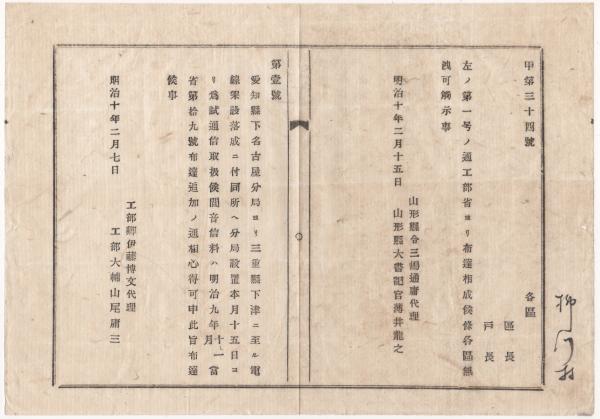 甲第三十四號
各區
區長
戸長
左ノ第一号ノ通工部省ヨリ布達相成候條各區無
洩可觸示事
明治十年二月十五日
山形縣令三島通庸代理
山形縣大書記官薄井龍之
第壹號
愛知縣下名古屋分局ヨリ三重縣下津ニ至ル電
線架設落成ニ付同所ヘ分局設置本月十五日ヨ
リ為試通信取扱候間音信料ハ明治九年十一月當
省第拾九號布達追加ノ通相心得可申此旨布達
候事
明治十年二月七日
工部卿伊藤博文代理
工部大輔山尾庸三